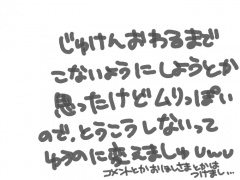 じゅけんおわるまで
こないようにしようとか
思ったけどムリっぽい
ので、とうこうしないって
ゆうのに変えましゅしwし
コメントとかおほしさまとかは
つけまし…